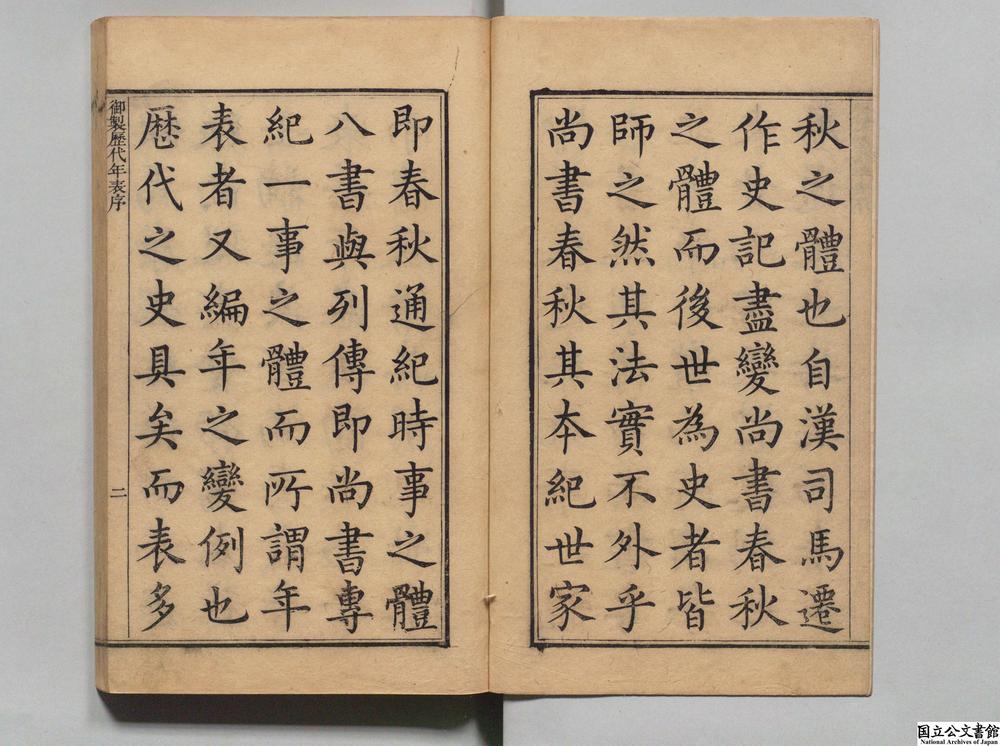 秋之體也自漢司馬遷
作史記盡變尚書春秋
之體而後世為史者皆
師之然其法實不外乎
尚書春秋其本紀世家
即春秋通紀時事之體
八書與列傳即尚書專
紀一事之體而所謂年
表者又編年之變例也
歴代之史具矣而表多
御製歷代年表序
二
国立公文書館
National Archives of Japan